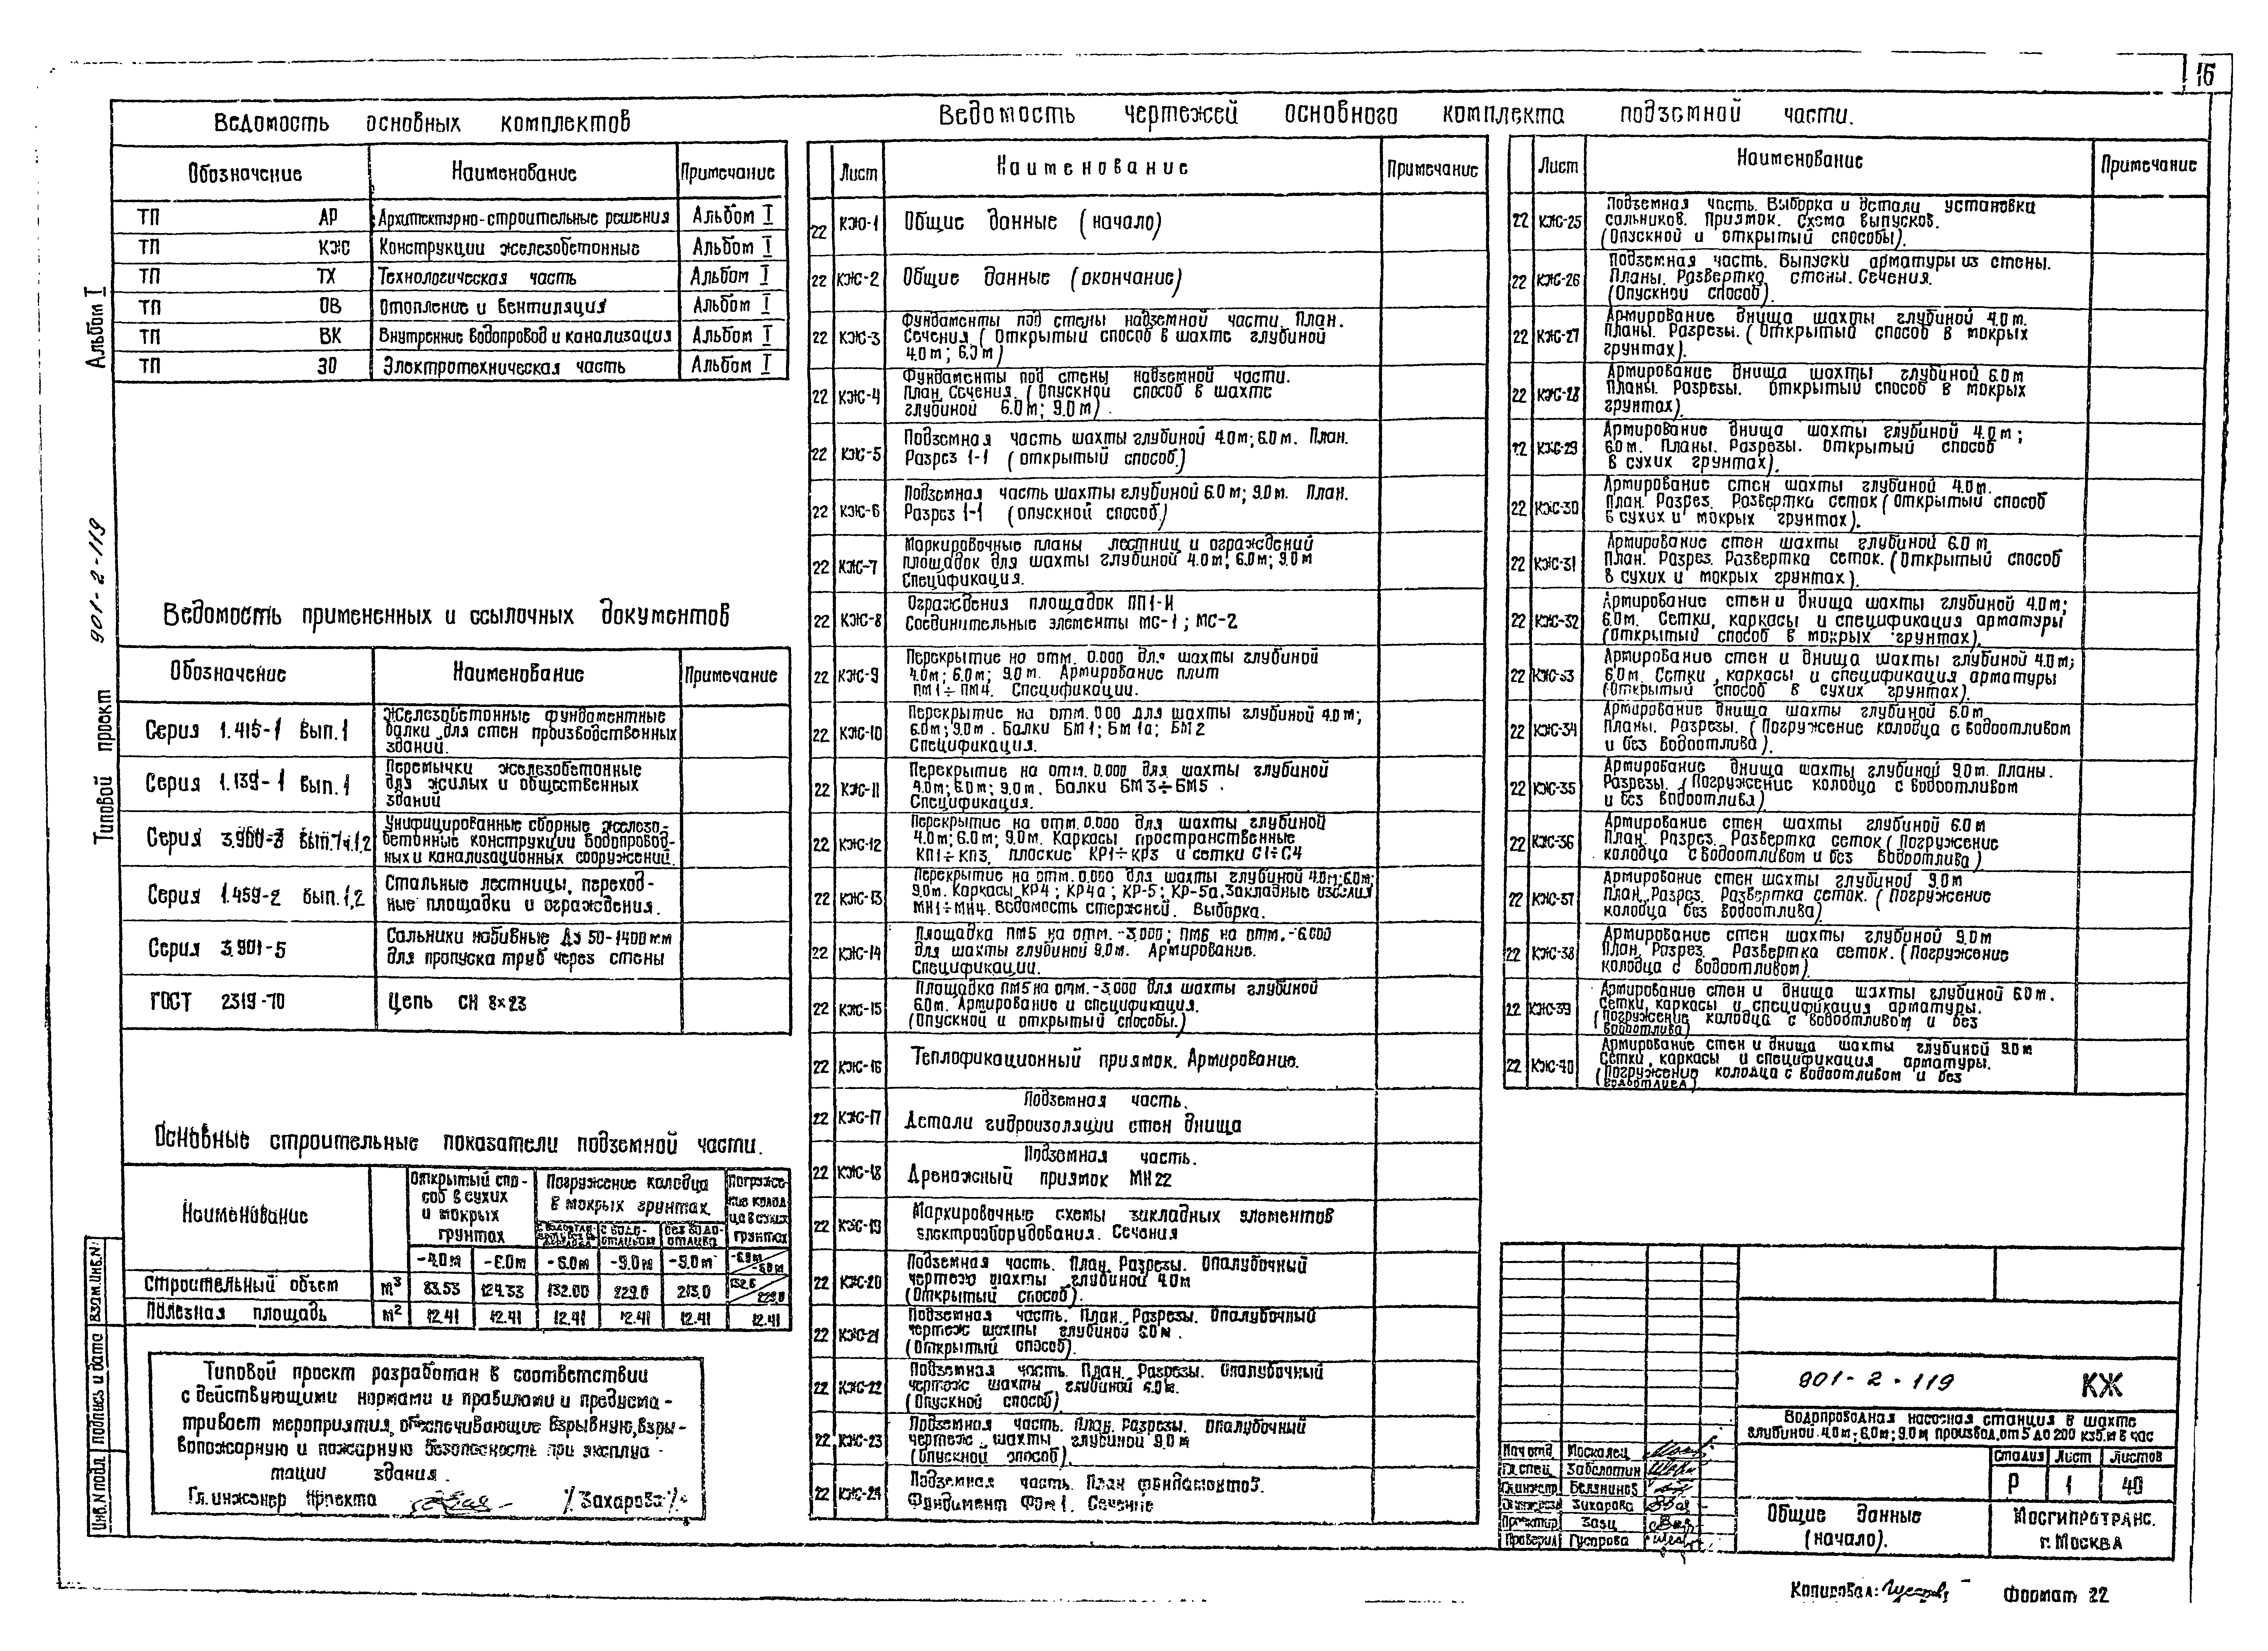 16
Ведомость основных комплектов
Обозначение Наименование Примечание
ТП АР Архитектурно-строительные решения Альбом I
ТП КЖ Конструкции железобетонные Альбом I
ТП ТХ Технологическая часть Альбом I
ТП ОВ Отопление и вентиляция Альбом I
ТП ВК Внутренние водопровод и канализация Альбом I
ТП ЭО Электротехническая часть Альбом I
Ведомость примененных и ссылочных документов
Обозначение Наименование Примечание
Серия 1.415-1 вып.1 Железобетонные фундаментные
балки для стен производственных
зданий.
Серия 1.139-1 вып.1 Перемычки железобетонные
для жилых и общественных
зданий
Серия 3.900-3 вып.7ч.1,2 Унифицированные сборные железо-
бетонные конструкции водопровод-
ных и канализационных сооружений.
Серия 1.459-2 вып.1,2 Стальные лестницы, переход-
ные площадки и ограждения.
Серия 3.901-5 Сальники набивные Ду 50-1400мм
для пропуска труб через стены
ГОСТ 2319-70 Цепь СН 8×23
Основные строительные показатели подземной части.
Наименование
Открытый спо-
соб в сухих
и мокрых
грунтах
Погружение колодца
в мокрых грунтах.
с водо-
отливом
без водо-
отлива
Погруже-
ние колод-
ца в сухих
грунтах
-4.0м -6.0м -6.0м -9.0м -9.0м -6.0м -9.0м
Строительный объем м³ 83.53 124.33 132.00 229.0 213.0 132.0 229.0
Полезная площадь м² 12.41 12.41 12.41 12.41 12.41 12.41
Типовой проект разработан в соответствии
с действующими нормами и правилами и предусма-
тривает мероприятия, обеспечивающие взрывную, взры-
вопожарную и пожарную безопасность при эксплуа-
тации здания.
Гл. инженер проекта /Захарова/
Альбом I
Типовой проект 901-2-119
Взам.инв.№
Подпись и дата
Инв.№ подл.
Ведомость чертежей основного комплекта подземной части.
Лист Наименование Примечание
22 КЖ-1 Общие данные (начало)
22 КЖ-2 Общие данные (окончание)
22 КЖ-3 Фундаменты под стены надземной части. План.
Сечения (Открытый способ в шахте глубиной
4.0м; 6.0м)
22 КЖ-4 Фундаменты под стены надземной части.
План. Сечения. (Опускной способ в шахте
глубиной 6.0м; 9.0м).
22 КЖ-5 Подземная часть шахты глубиной 4.0м; 6.0м. План.
Разрез 1-1 (открытый способ.)
22 КЖ-6 Подземная часть шахты глубиной 6.0м; 9.0м. План.
Разрез 1-1 (опускной способ.)
22 КЖ-7 Маркировочные планы лестниц и ограждений
площадок для шахты глубиной 4.0м; 6.0м; 9.0м
Спецификация.
22 КЖ-8 Ограждения площадок ПП1-И
Соединительные элементы МС-1; МС-2
22 КЖ-9 Перекрытие на отм. 0.000 для шахты глубиной
4.0м; 6.0м; 9.0м. Армирование плит
ПМ1÷ПМ4. Спецификации.
22 КЖ-10 Перекрытие на отм. 0 00 для шахты глубиной 4.0м;
6.0м; 9.0м. Балки БМ1; БМ1а; БМ2
Спецификация.
22 КЖ-11 Перекрытие на отм. 0.000 для шахты глубиной
4.0м; 6.0м; 9.0м. Балки БМ3÷БМ5.
Спецификация.
22 КЖ-12 Перекрытие на отм. 0.000 для шахты глубиной
4.0м; 6.0м; 9.0м. Каркасы пространственные
КП1÷КП3, плоские КР1÷КР3 и сетки С1÷С4
22 КЖ-13 Перекрытие на отм. 0.000 для шахты глубиной 4.0м; 6.0м;
9.0м. Каркасы КР4; КР4а; КР-5; КР-5а. Закладные изделия
МН1÷МН4. Ведомость стержней. Выборка.
22 КЖ-14 Площадка ПМ5 на отм. -3.000; ПМ6 на отм. -6.000
для шахты глубиной 9.0м. Армирование.
Спецификации.
22 КЖ-15 Площадка ПМ5 на отм. -3.000 для шахты глубиной
6.0м. Армирование и спецификация.
(Опускной и открытый способы.)
22 КЖ-16 Теплофикационный приямок. Армирование.
22 КЖ-17 Подземная часть.
Детали гидроизоляции стен днища
22 КЖ-18 Подземная часть.
Дренажный приямок МН22
22 КЖ-19 Маркировочные схемы закладных элементов
электрооборудования. Сечения
22 КЖ-20 Подземная часть. План. Разрезы. Опалубочный
чертеж шахты глубиной 4.0м
(Открытый способ).
22 КЖ-21 Подземная часть. План. Разрезы. Опалубочный
чертеж шахты глубиной 6.0м.
(Открытый способ).
22 КЖ-22 Подземная часть. План. Разрезы. Опалубочный
чертеж шахты глубиной 6.0м.
(Опускной способ)
22 КЖ-23 Подземная часть. План. Разрезы. Опалубочный
чертеж шахты глубиной 9.0м
(Опускной способ).
22 КЖ-24 Подземная часть. План фундаментов.
Фундамент ФОм1. Сечение
Лист Наименование Примечание
22 КЖ-25 Подземная часть. Выборка и детали установка
сальников. Приямок. Схема выпусков.
(Опускной и открытый способы).
22 КЖ-26 Подземная часть. Выпуски арматуры из стены.
Планы. Развертка стены. Сечения.
(Опускной способ).
22 КЖ-27 Армирование днища шахты глубиной 4.0м.
Планы. Разрезы. (Открытый способ в мокрых
грунтах).
22 КЖ-28 Армирование днища шахты глубиной 6.0м
Планы. Разрезы. Открытый способ в мокрых
грунтах).
22 КЖ-29 Армирование днища шахты глубиной 4.0м;
6.0м. Планы. Разрезы. Открытый способ
в сухих грунтах).
22 КЖ-30 Армирование стен шахты глубиной 4.0м.
План. Разрез. Развертка сеток (Открытый способ
в сухих и мокрых грунтах).
22 КЖ-31 Армирование стен шахты глубиной 6.0м
План. Разрез. Развертка сеток. (Открытый способ
в сухих и мокрых грунтах).
22 КЖ-32 Армирование стен и днища шахты глубиной 4.0м;
6.0м. Сетки, каркасы и спецификация арматуры
(Открытый способ в мокрых грунтах).
22 КЖ-33 Армирование стен и днища шахты глубиной 4.0м;
6.0м. Сетки, каркасы и спецификация арматуры
(Открытый способ в сухих грунтах).
22 КЖ-34 Армирование днища шахты глубиной 6.0м.
Планы. Разрезы. (Погружение колодца с водоотливом
и без водоотлива).
22 КЖ-35 Армирование днища шахты глубиной 9.0м. Планы.
Разрезы. (Погружение колодца с водоотливом
и без водоотлива)
22 КЖ-36 Армирование стен шахты глубиной 6.0м
План. Разрез. Развертка сеток (Погружение
колодца с водоотливом и без водоотлива)
22 КЖ-37 Армирование стен шахты глубиной 9.0м
План. Разрез. Развертка сеток. (Погружение
колодца без водоотлива)
22 КЖ-38 Армирование стен шахты глубиной 9.0м
План. Разрез. Развертка сеток. (Погружение
колодца с водоотливом)
22 КЖ-39 Армирование стен и днища шахты глубиной 6.0м.
Сетки, каркасы и спецификация арматуры.
(Погружение колодца с водоотливом и без
водоотлива)
22 КЖ-40 Армирование стен и днища шахты глубиной 9.0м
Сетки, каркасы и спецификация арматуры.
(Погружение колодца с водоотливом и без
водоотлива)
901-2-119 КЖ
Водопроводная насосная станция в шахте
глубиной 4.0м; 6.0м; 9.0м производ. от 5 до 200 куб.м в час
Стадия Лист Листов
Р 1 40
Нач отд Москалец
Гл.спец. Заболотин
Захарова
Проектир Заяц
Проверил
Общие данные
(начало).
Мосгипротранс.
г. Москва
Копировал: Формат 22